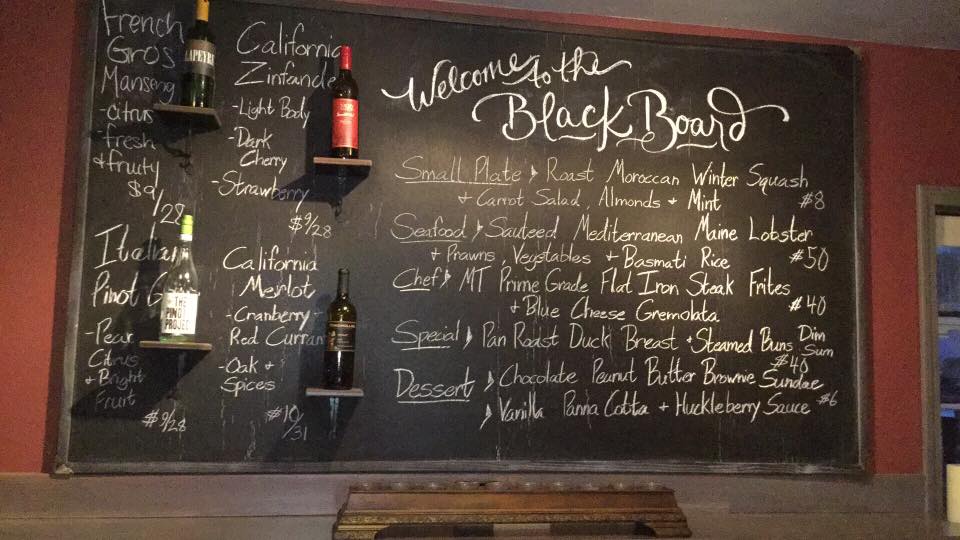 French
Gros
Manseng
-citrus
-fresh
+ fruity
$9/28
LAPEYRE
California
Zinfandel
-Light Body
-Dark
Cherry
-Strawberry
$9/28
Italian
Pinot G
-Pear
Citrus
+ Bright
Fruit
$9/28
THE
PINOT
PROJECT
California
Merlot
-Cranberry
Red Curran
-Oak +
Spices
$10/31
Welcome to the
BlackBoard
Small Plate Roast Moroccan Winter Squash
+ Carrot Salad, Almonds + Mint $8
Seafood Sauteed Mediterranean Maine Lobster
+ Prawns, Vegetables + Basmati Rice $50
Chef MT Prime Grade Flat Iron Steak Frites
+ Blue Cheese Gremolata $40
Special Pan Roast Duck Breast + Steamed Buns Dim Sum
$40
Dessert Chocolate Peanut Butter Brownie Sundae
Vanilla Panna Cotta + Huckleberry Sauce $6